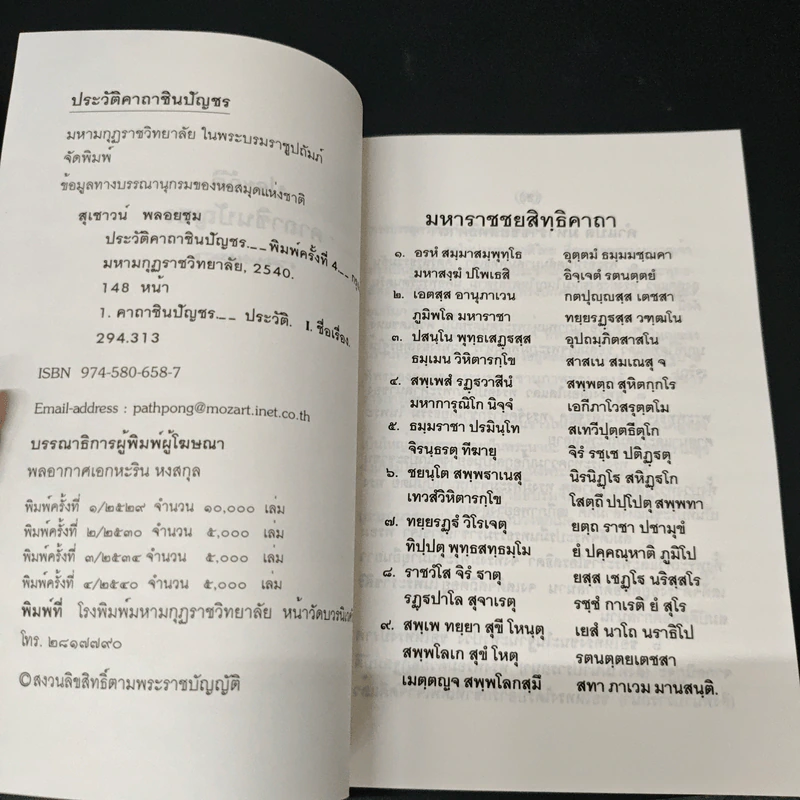 ประวัติคาถาชินบัญชร
มหามกุฏราชวิทยาลัย ในพระบรมราชูปถัมภ์
จัดพิมพ์
ข้อมูลทางบรรณานุกรมของหอสมุดแห่งชาติ
สุเชาวน์ พลอยชุม
ประวัติคาถาชินบัญชร.__พิมพ์ครั้งที่ 4.__
มหามกุฏราชวิทยาลัย, 2540.
148 หน้า
1. คาถาชินบัญชร.__ ประวัติ. I. ชื่อเรื่อง.
294.313
ISBN 974-580-658-7
Email-address : pathpong@mozart.inet.co.th
บรรณาธิการผู้พิมพ์ผู้โฆษณา
พลอากาศเอกหะริน หงสกุล
พิมพ์ครั้งที่ ๑/๒๕๒๙ จำนวน ๑๐,๐๐๐ เล่ม
พิมพ์ครั้งที่ ๒/๒๕๓๐ จำนวน ๕,๐๐๐ เล่ม
พิมพ์ครั้งที่ ๓/๒๕๓๔ จำนวน ๕,๐๐๐ เล่ม
พิมพ์ครั้งที่ ๔/๒๕๔๐ จำนวน ๕,๐๐๐ เล่ม
พิมพ์ที่ โรงพิมพ์มหามกุฏราชวิทยาลัย หน้าวัดบวรนิเวศ
โทร. ๒๘๑๗๗๙๐
©สงวนลิขสิทธิ์ตามพระราชบัญญัติ
มหาราชชยสิทฺธิคาถา
๑. อรหํ สมฺมาสมฺพุทฺโธ อุตฺตมํ ธมฺมมชฺฌคา
มหาสงฺฆํ ปโพเธสิ อิจฺเจตํ รตนตฺตยํ
๒. เอตสฺส อานุภาเวน กตปุญฺญสฺส เตชสา
ภูมิพโล มหาราชา ทยฺยรฏฺฐสฺส วฑฺฒโน
๓. ปสนฺโน พุทฺธเสฏฺฐสฺส อุปถมฺภิตสาสโน
ธมฺเมน วิหิตารกฺโข สาสเน สมเณสุ จ
๔. สพฺเพสํ รฏฺฐวาสีนํ สพฺพตฺถ สุหิตกฺกโร
มหาการุณิโก นิจฺจํ เอกีภาโวสรุตฺตโม
๕. ธมฺมราชา ปรมินฺโท สเทวีปุตฺตธีตุโก
จิรนฺธรตุ ทีฆายุ จิรํ รชฺเช ปติฏฺฐตุ
๖. ชยนฺโต สพฺพฐาเนสุ นิรนิฏฺโฐ สหิฏฺฐโก
เทวสํวิหิตารกฺโข โสตฺถึ ปปฺโปตุ สพฺพทา
๗. ทยฺยรฏฺฐํ วิโรเจตุ ยตฺถ ราชา ปชามุขํ
ทิปฺปตุ พุทฺธสทฺธมฺโม ยํ ปคฺคณฺหาติ ภูมิโป
๘. ราชวํโส จิรํ ฐาตุ ยสฺส เชฏฺโฐ นริสฺสโร
รฏฺฐปาโล สุจาเรตุ รชฺชํ กาเรติ ยํ สุโร
๙. สพฺเพ ทยฺยา สุขี โหนฺตุ เยสํ นาโถ นราธิโป
สพฺพโลเก สุขํ โหตุ รตนตฺตยเตชสา
เมตฺตญฺจ สพฺพโลกสฺมึ สทา ภาเวม มานสนฺติ.